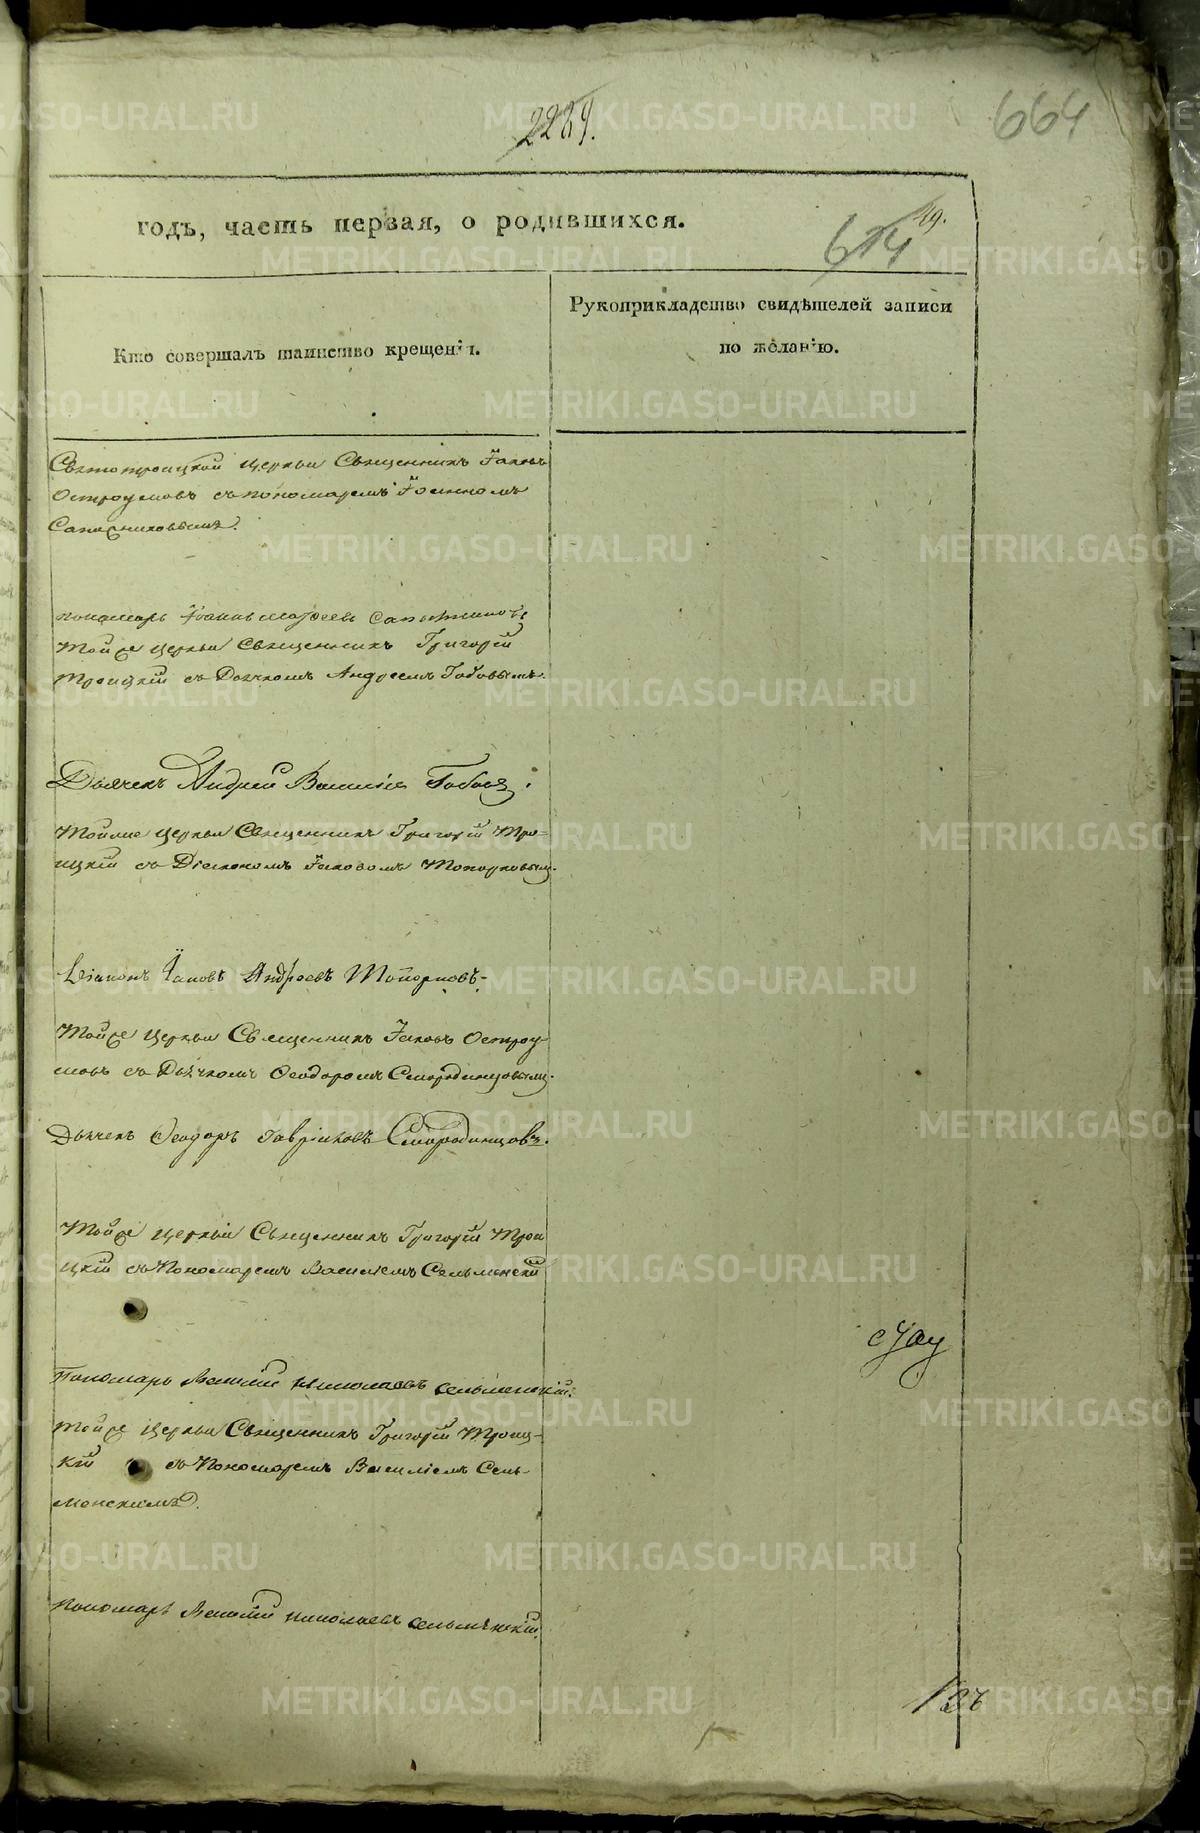 2289.
664
годъ, часть первая, о родившихся.
49.
614
Кто совершалъ таинство крещенія.
Рукоприкладство свидѣтелей записи
по желанію.
Святотроицкой церкви Священникъ Іаковъ
Остроумовъ съ пономаремъ Іоанномъ
Сапожниковымъ.
пономарь Іоаннъ Сапожниковъ
Тойже церкви Священникъ Григорій
Троицкій съ Дьячкомъ Андреемъ Бабовымъ.
Дьячекъ Андрей Василіевъ
Тойже церкви Священникъ Григорій Тро-
ицкій съ Діакономъ Іаковомъ Топорковымъ.
Діаконъ Іаковъ Андреевъ Топорковъ.
Тойже церкви Священникъ Іаковъ Остроу-
мовъ съ Дьячкомъ Ѳеодоромъ Смородинцовымъ.
Дьячекъ Ѳеодоръ Гавріиловъ Смородинцовъ.
Тойже церкви Священникъ Григорій Трои
цкій съ Пономаремъ Василіемъ Сельменский
Пономарь Василій Николаевъ Сельменскій.
Тойже церкви Священникъ Григорій Троиц-
кій съ Пономаремъ Василіемъ Сель-
менскимъ.
Пономарь Василій Николаевъ Сельменскій.
METRIKI.GASO-URAL.RU